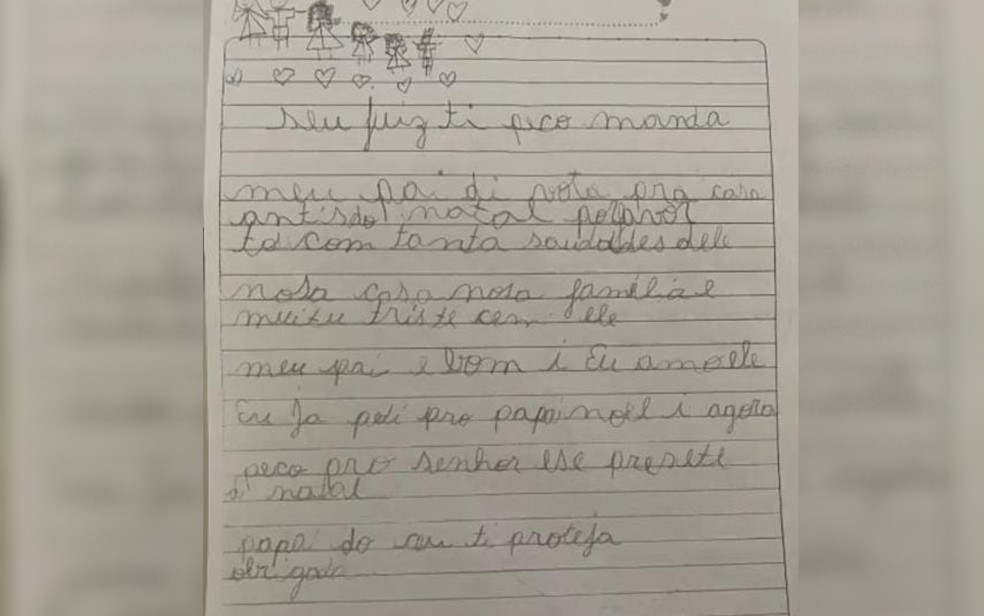 seu juiz ti peco manda
meu pai di vota pra casa
antisdo natal porfavor
to com tanta saudaldes dele
nosa casa nosa familia e
muitu triste cem ele
meu pai e bom i Eu amoele
Eu Ja pedi pro papai noel i agora
peco pro senhor ese presete
di natal
papai do ceu ti proteja
obrigada